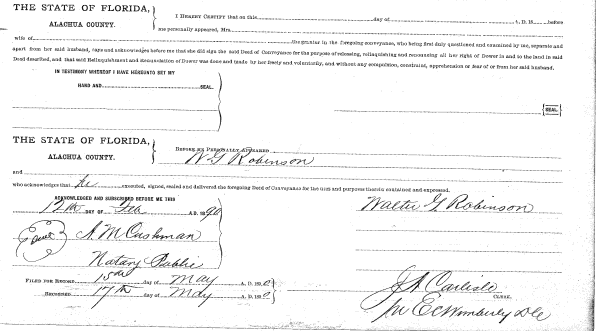 THE STATE OF FLORIDA,
ALACHUA COUNTY.
I HEREBY CERTIFY that on this day of A. D. 18 before
me personally appeared, Mrs.
wife of the grantor in the foregoing conveyance, who being first duly questioned and examined by me, separate and
apart from her said husband, says and acknowledges before me that she did sign the said Deed of Conveyance for the purpose of releasing, relinquishing and renouncing all her right of Dower in and to the land in said
Deed described, and that said Relinquishment and Renunciation of Dower was done and made by her freely and voluntarily, and without any compulsion, constraint, apprehension or fear of or from her said husband.
IN TESTIMONY WHEREOF I HAVE HEREUNTO SET MY
HAND AND SEAL.
SEAL
THE STATE OF FLORIDA,
ALACHUA COUNTY.
BEFORE ME PERSONALLY APPEARED
W G Robinson
and
who acknowledges that he executed, signed, sealed and delivered the foregoing Deed of Conveyance for the uses and purposes therein contained and expressed.
ACKNOWLEDGED AND SUBSCRIBED BEFORE ME THIS
12th DAY OF Feb A. D. 1890
Walter G Robinson
A. M Cushman
Notary Public
FILED FOR RECORD 15th day of May A. D. 1890
J A Carlisle
CLERK.
RECORDED 17th day of May A. D. 1890
Per E C Wimberly D C